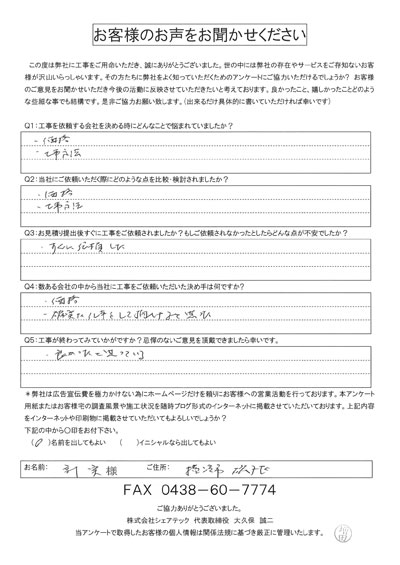 お客様のお声をお聞かせください
この度は弊社に工事をご用命いただき、誠にありがとうございました。世の中には弊社の存在やサービスをご存知ないお客
様が沢山いらっしゃいます。その方たちに弊社をよく知っていただくためのアンケートにご協力いただけるでしょうか? お客様
のご意見をお聞かせいただき今後の活動に反映させていただきたいと考えております。良かったこと、嬉しかったことどのよう
な些細な事でも結構です。是非ご協力お願い致します。(出来るだけ具体的に書いていただければ幸いです)
Q1:工事を依頼する会社を決める時にどんなことで悩まれていましたか?
・価格
・工事方法
Q2:当社にご依頼いただく際にどのような点を比較・検討されましたか?
・価格
・工事方法
Q3:お見積り提出後すぐに工事をご依頼されましたか?もしご依頼されなかったとしたらどんな点が不安でしたか?
・すぐに依頼した
Q4:数ある会社の中から当社に工事をご依頼いただいた決め手は何ですか?
・価格
・確実な
Q5:工事が終わってみていかがですか?忌憚のないご意見を頂戴できましたら幸いです。
・良かったと思っている
*弊社は広告宣伝費を極力かけない為にホームページだけを頼りにお客様への営業活動を行っております。本アンケート
用紙またはお客様宅の調査風景や施工状況を随時ブログ形式のインターネットに掲載させていただいております。上記内容
をインターネットや印刷物に掲載させていただいてもよろしいでしょうか?
下記の中から〇印をお付下さい。
(〇)名前を出してもよい ( )イニシャルなら出してもよい
お名前: 様 ご住所:
FAX 0438-60-7774
ご協力ありがとうございました。
株式会社シェアテック 代表取締役 大久保 誠二
当アンケートで取得したお客様の個人情報は関係法規に基づき厳正に管理いたします。